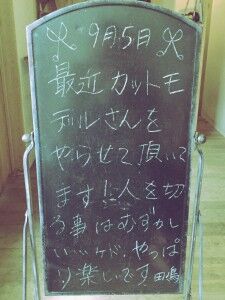 9月5日
最近カットモ
デルさんを
やらせて頂いて
ます!人を切
る事はむずかし
い…ケド、やっぱ
り楽しいです 田嶋